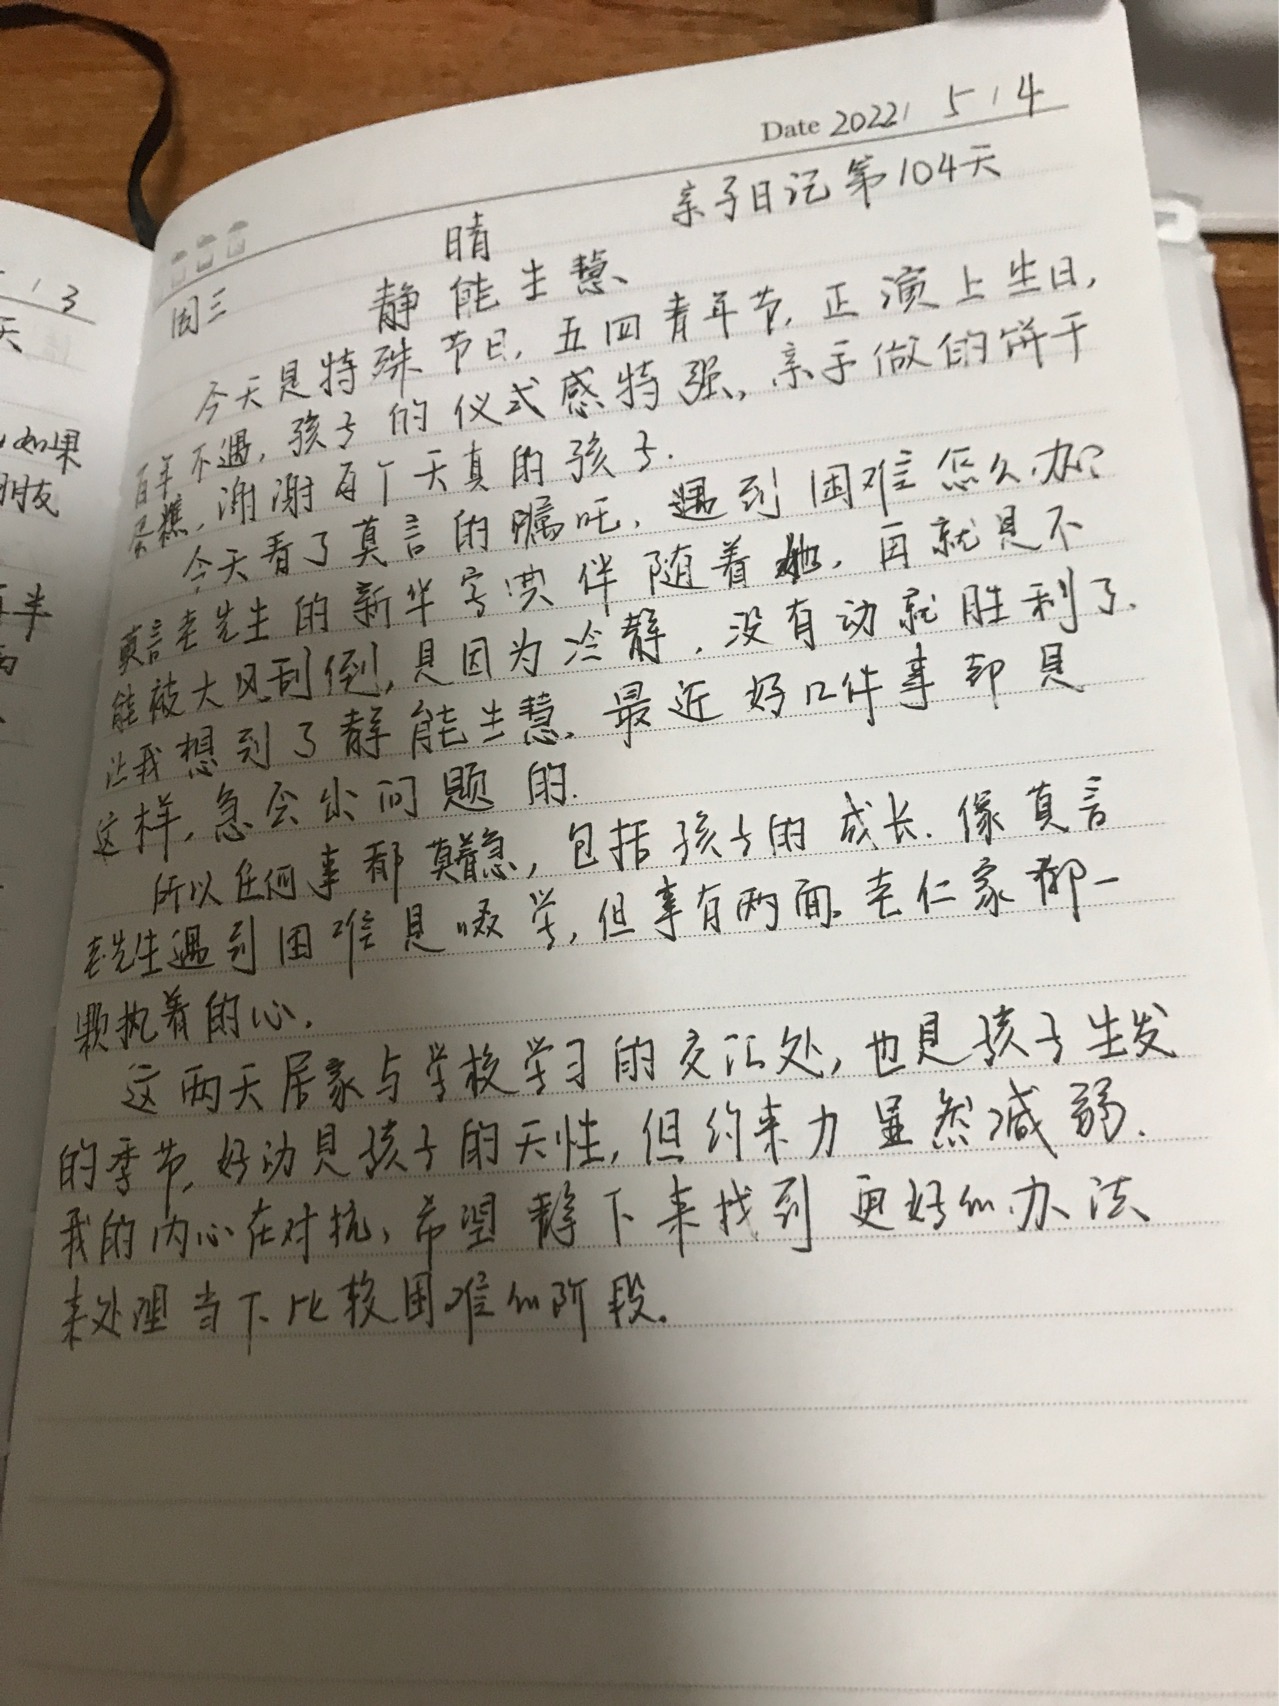 Date 2022 / 5 / 4
亲子日记第104天
周三
晴
静能生慧
今天是特殊节日，五四青年节，正演上生日，
百年不遇，孩子的仪式感特强，亲手做的饼干
蛋糕，谢谢每个天真的孩子.
今天看了莫言的嘱咐，遇到困难怎么办?
莫言老先生的新华字典伴随着她，再就是不
能被大风刮倒，是因为冷静，没有动就胜利了.
让我想到了静能生慧.最近好几件事都是
这样，急会出问题的.
所以任何事都莫着急，包括孩子的成长.像莫言
老先生遇到困难是啜学，但事有两面.老仁家都一
颗执着的心.
这两天居家与学校学习的交汇处，也是孩子生发
的季节，好动是孩子的天性，但约束力显然减弱.
我的内心在对抗，希望静下来找到更好的办法
来处理当下比较困难的阶段。
/ 3
天
如果
朋友
半